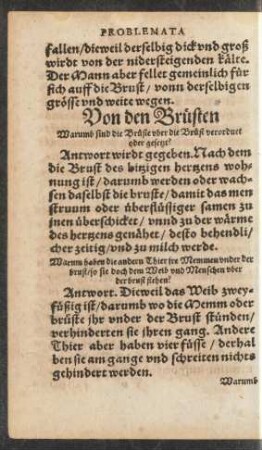 PROBLEMATA
fallen/dieweil derselbig dick vnd groß
wirdt von der nidersteigenden kälte.
Der Mann aber fellet gemeinlich für
sich auff die Brust/ vonn derselbigen
grösse vnd weite wegen.
Von den Brüsten
Warumb sind die Brüste vber die Brust verordnet
oder gesetzt?
Antwort wirdt gegeben. Nach dem
die Brust des hitzigen hertzens woh-
nung ist/ darumb werden oder wach-
sen daselbst die bruste/ damit das men
struum oder überflüssiger samen zu
jnen überschicket/ vnnd zu der wärme
des hertzens genähet/ desto behendli-
cher zeitig/ vnd zu milch werde.
Warum haben die andern Thier jre Memmen vnder der
brust/so sie doch dem Weib vnd Menschen vber
der brust stehen?
Antwort. Dieweil das Weib zwey-
füßig ist/darumb wo die Memm oder
brüste jhr vnder der Brust stünden/
verhinderten sie jhren gang. Andere
Thier aber haben vier füsse/ derhal
ben sie am gange vnd schreiten nichts
gehindert werden.
Warumb